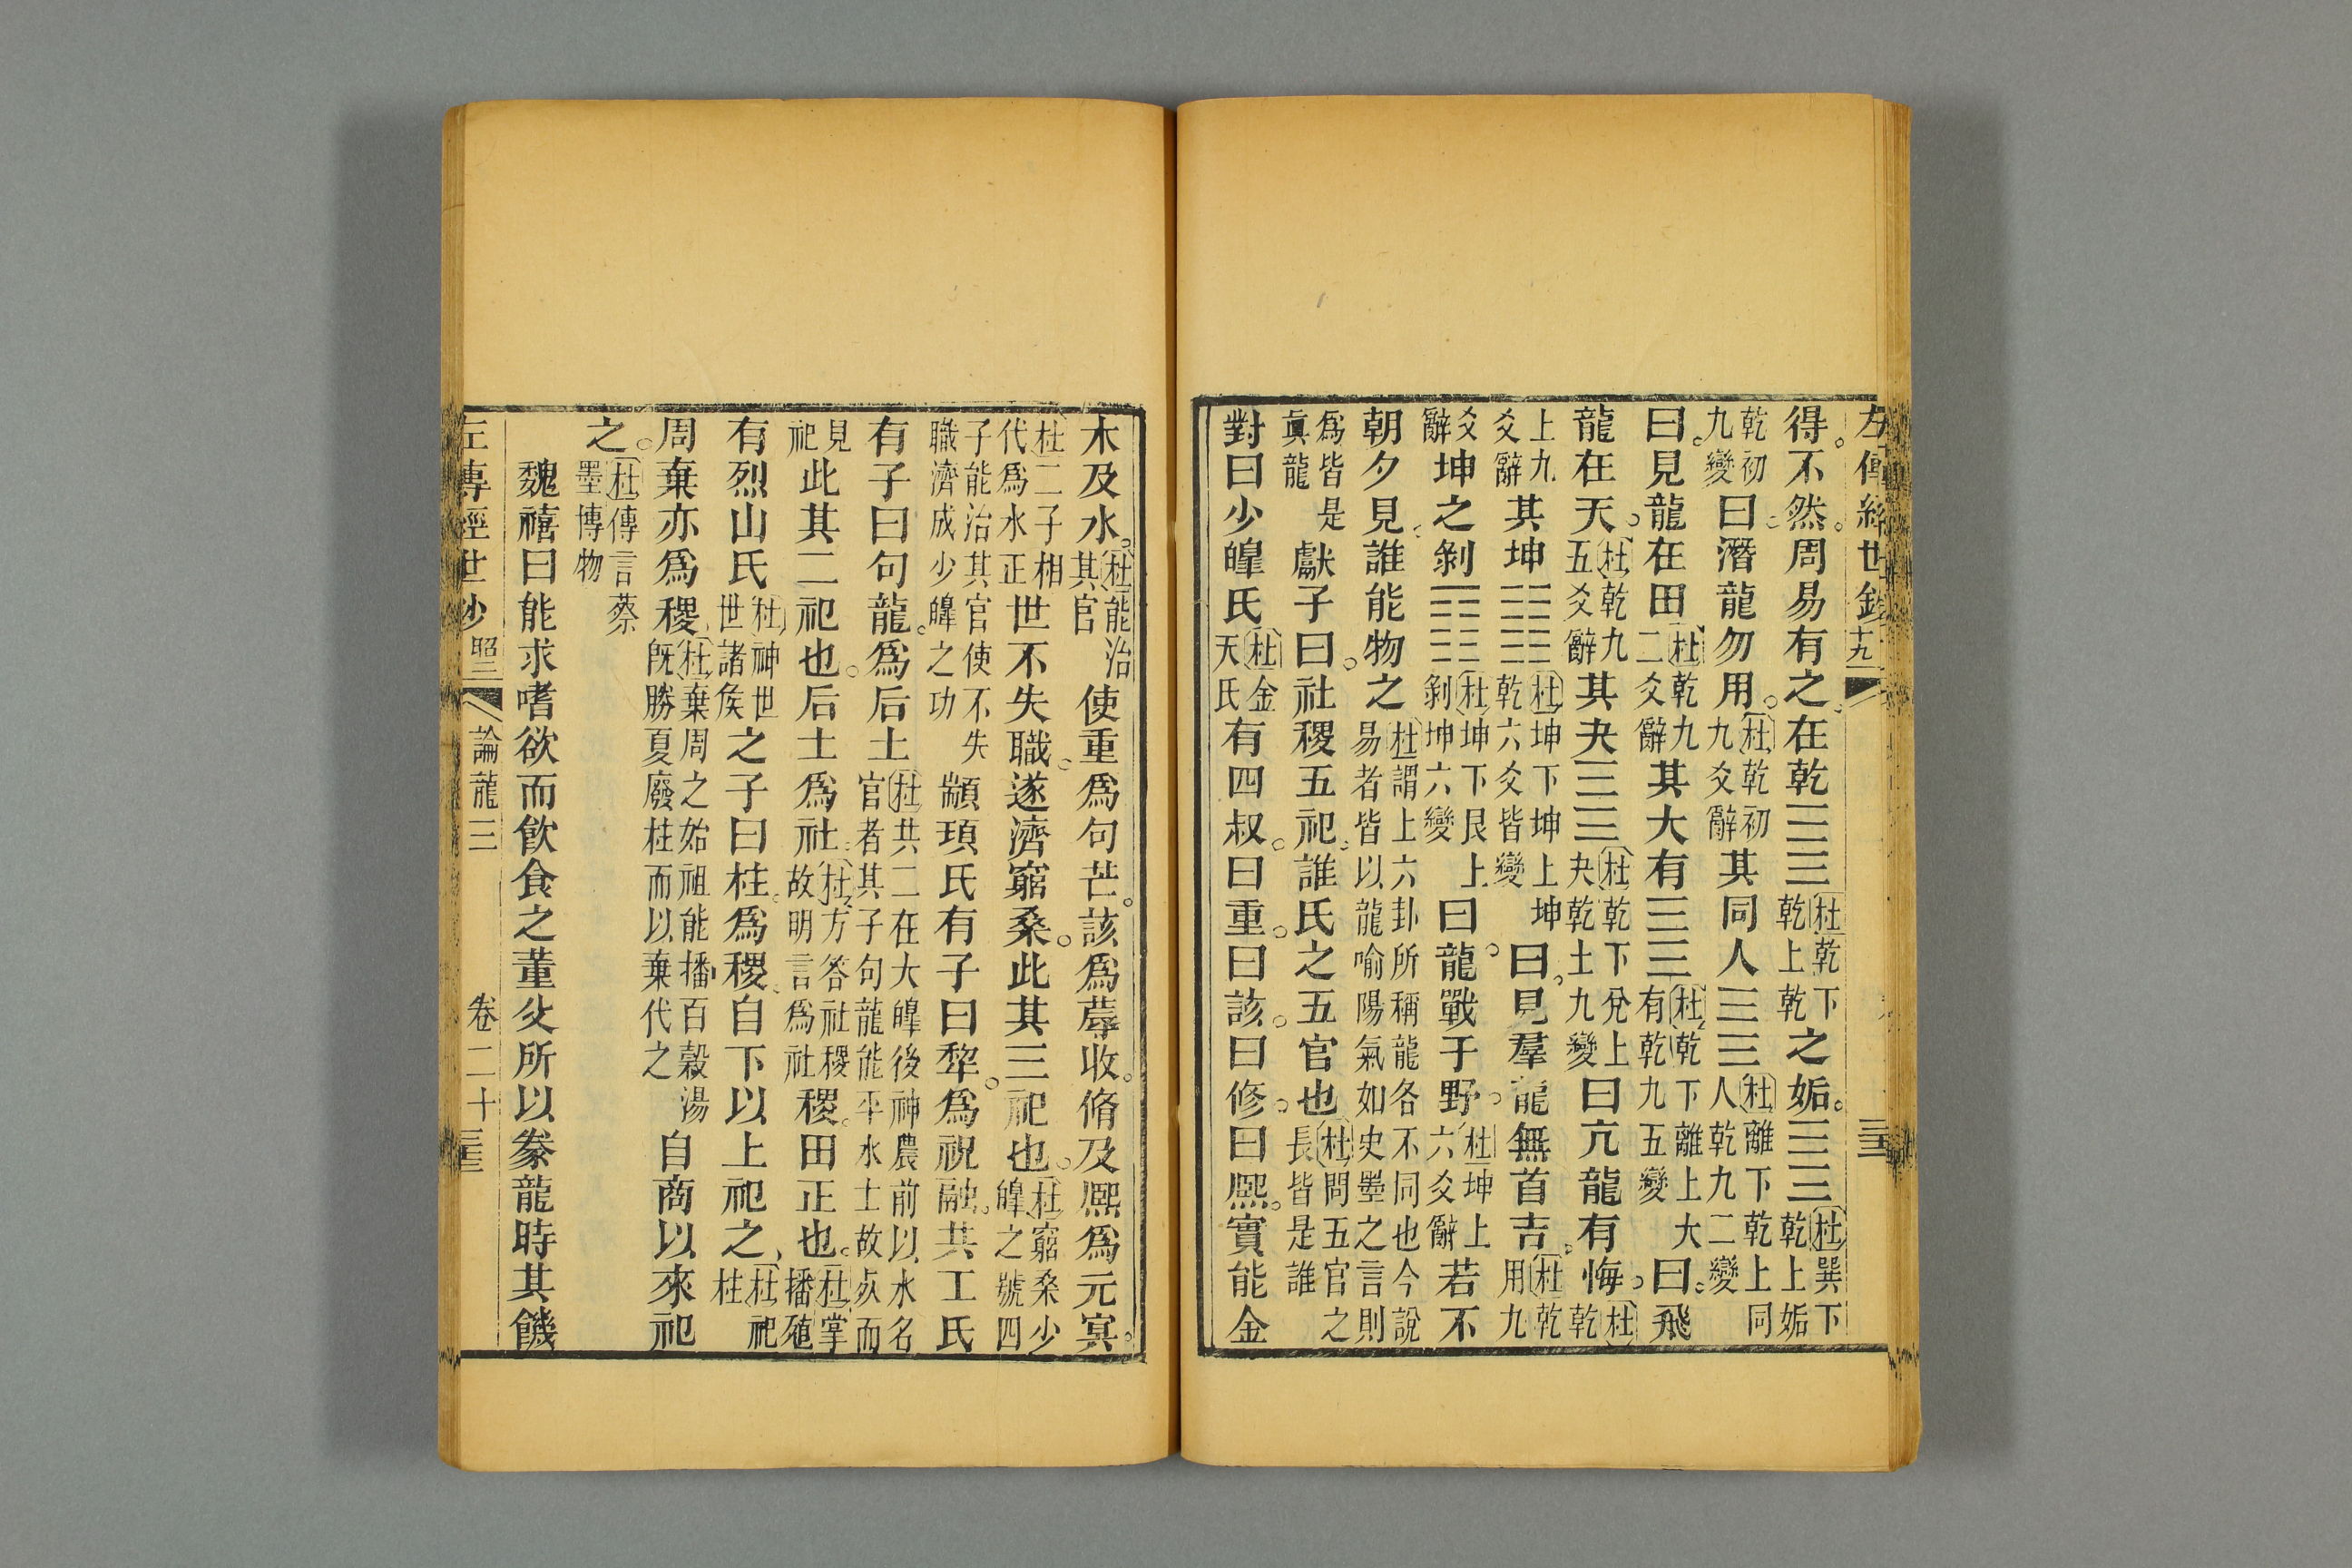 左傳經世鈔十九
得。不然。周易有之。在乾☰☰杜乾下乾上乾之姤。☰☰杜巽下乾上姤
乾初九變曰潛龍勿用。杜乾初九爻辭其同人☰☰杜離下乾上同人乾九二變
曰。見龍在田杜乾九二爻辭其大有☰☰杜乾下離上大有乾九五變曰。飛
龍在天。杜乾九五爻辭其夬☰☰杜乾下兌上夬乾上九變曰亢龍有悔。杜乾
上九爻辭其坤☷☷杜坤下坤上坤乾六爻皆變曰。見羣龍無首吉。杜乾用九
爻辭坤之剝☷☷杜坤下艮上剝坤六變曰。龍戰于野。杜坤上六爻辭若不
朝夕見。誰能物之杜謂上六卦所稱龍各不同也今說易者皆以龍喻陽氣如史墨之言則
爲皆是眞龍獻子曰。社稷五祀。誰氏之五官也杜問五官之長皆是誰
對曰少皥氏杜金天氏有四叔。曰重。曰該。曰修。曰熙。實能金
木及水。杜能治其官使重爲句芒。該爲蓐收。脩及熙爲元冥。
杜二子相代爲水正世不失職。遂濟窮桑。此其三祀也。杜窮桑少皥之號四
子能治其官使不失職濟成少皥之功顓頊氏有子曰犂。爲祝融。共工氏
有子曰句龍。爲后土杜共工在大皥後神農前以水名官者其子句龍能平水土故死而
見祀此其二祀也。后土爲社。杜方答社稷故明言爲社稷。田正也。杜掌播殖
有烈山氏杜神世世諸侯之子曰柱。爲稷。自下以上祀之、杜祀柱
周棄亦爲稷杜棄周之始祖能播百穀湯既勝夏廢柱而以棄代之自商以來祀
之。杜傳言蔡墨博物
魏禧曰能求嗜欲而飲食之董父所以豢龍時其饑
左傳經世鈔 昭三 論龍三 卷二十